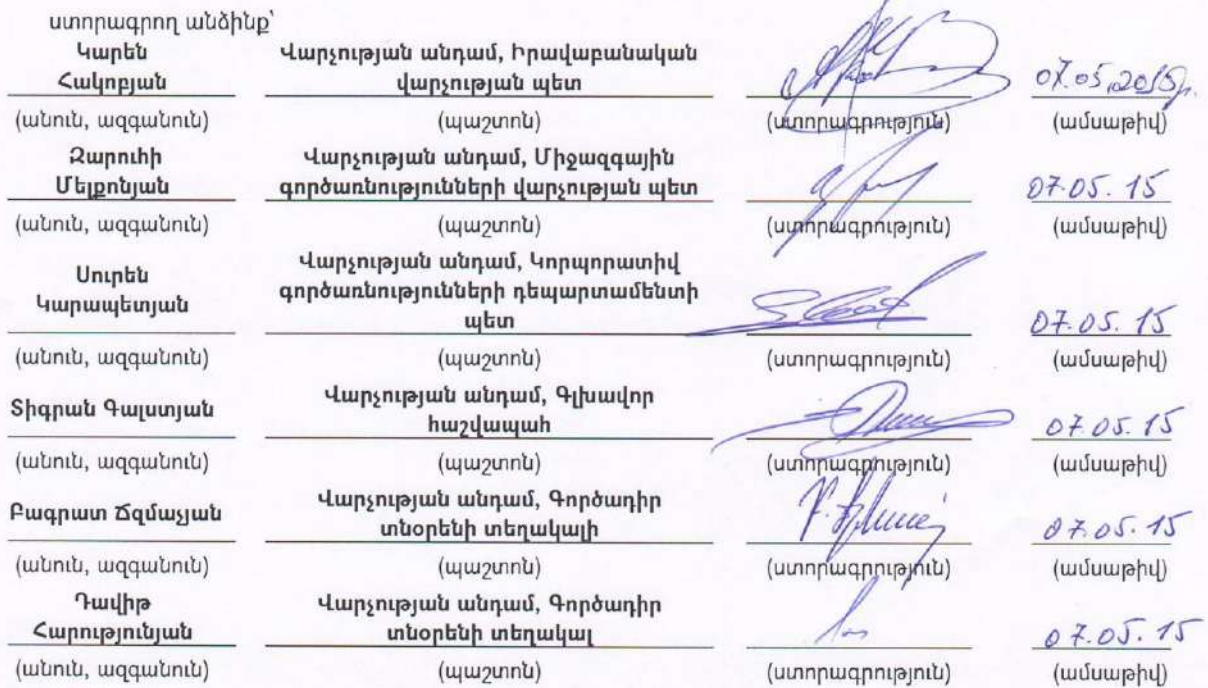 ստորագրող անձինք՝
Կարեն Վարչության անդամ, Իրավաբանական
Հակոբյան վարչության պետ 07.05.2015թ.
(անուն, ազգանուն) (պաշտոն) (ստորագրություն) (ամսաթիվ)
Զարուհի Վարչության անդամ, Միջազգային
Մելքոնյան գործառնությունների վարչության պետ 07.05.15
(անուն, ազգանուն) (պաշտոն) (ստորագրություն) (ամսաթիվ)
Սուրեն Վարչության անդամ, Կորպորատիվ
Կարապետյան գործառնությունների դեպարտամենտի
պետ 07.05.15
(անուն, ազգանուն) (պաշտոն) (ստորագրություն) (ամսաթիվ)
Տիգրան Գալստյան Վարչության անդամ, Գլխավոր
հաշվապահ 07.05.15
(անուն, ազգանուն) (պաշտոն) (ստորագրություն) (ամսաթիվ)
Բագրատ Ճզմաչյան Վարչության անդամ, Գործադիր
տնօրենի տեղակալի 07.05.15
(անուն, ազգանուն) (պաշտոն) (ստորագրություն) (ամսաթիվ)
Դավիթ Վարչության անդամ, Գործադիր
Հարությունյան տնօրենի տեղակալ 07.05.15
(անուն, ազգանուն) (պաշտոն) (ստորագրություն) (ամսաթիվ)